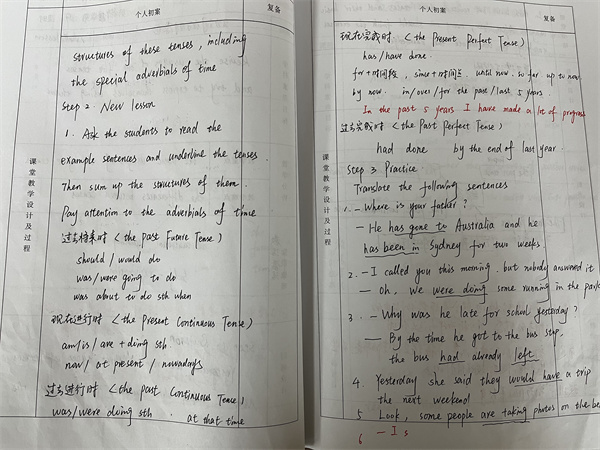 个人初案
复备
structures of these tenses, including
the special adverbials of time
Step 2. New lesson
1. Ask the students to read the
example sentences and underline the tenses.
Then sum up the structures of them.
Pay attention to the adverbials of time
过去将来时 < the Past Future Tense)
should / would do
was/were going to do
was about to do sth when
现在进行时 < the Present Continuous Tense)
am/is/are + doing sth
now / at present / nowadays
过去进行时 < the past Continuous Tense)
was/were doing sth . at that time
课堂教学设计及过程
个人初案
复备
现在完成时 < the Present Perfect Tense)
has/have done.
for+时间段, since+时间点, until now. so far. up to now
by now. in/over/for the past/last 5 years.
In the past 5 years I have made a lot of progress
过去完成时 < the Past Perfect Tense)
had done by the end of last year.
Step 3 Practice.
Translate the following sentences
1. – Where is your father?
– He has gone to Australia and he
has been in Sydney for two weeks.
2. – I called you this morning. but nobody answered it
– Oh, we were doing some running in the park
3. – Why was he late for school yesterday?
– By the time he got to the bus stop,
the bus had already left.
4. Yesterday she said they would have a trip
the next weekend
5 Look, some people are taking photos on the
6 – I s
课堂教学设计及过程